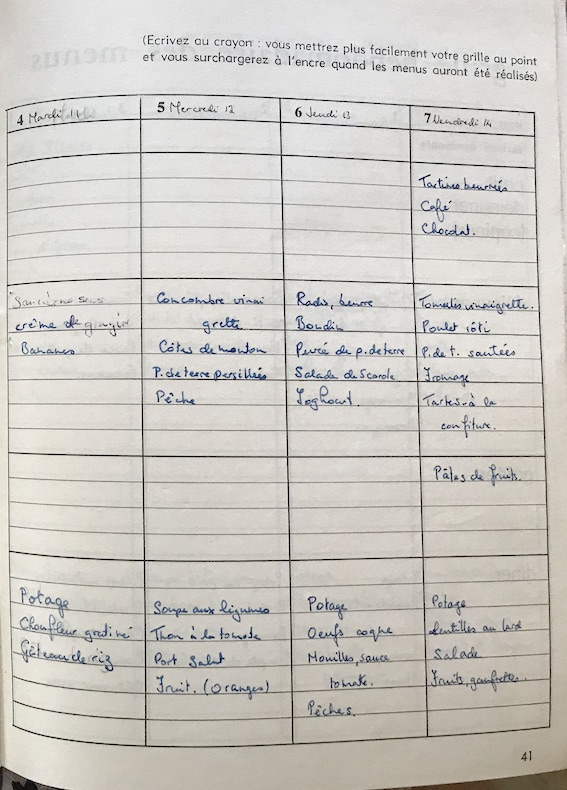 (Ecrivez au crayon : vous mettrez plus facilement votre grille au point
et vous surchargerez à l'encre quand les menus auront été réalisés)
4 Mardi 11
5 Mercredi 12
6 Jeudi 13
7 Vendredi 14
Tartines beurrés
Café
Chocolat.
crème de gruyère
Bananes
Concombre vinai
grette
Côtes de mouton
P. de terre persillées
Pêche
Radis, beurre
Boudin
Purée de p. de terre
Salade de Scarole
Yoghourt.
Tomates vinaigrette.
Poulet rôti
P. de t. sautées
Fromage
Tartes à la
confiture.
Pâtes de fruits.
Potage
Choufleur gratiné
Gâteau de riz
Soupe aux légumes
Thon à la tomate
Port Salut
Fruit. (Oranges)
Potage
Oeufs coque
Nouilles, sauce
tomate.
Pêches.
Potage
Lentilles au lard
Salade
Fruits, gaufrettes.
41